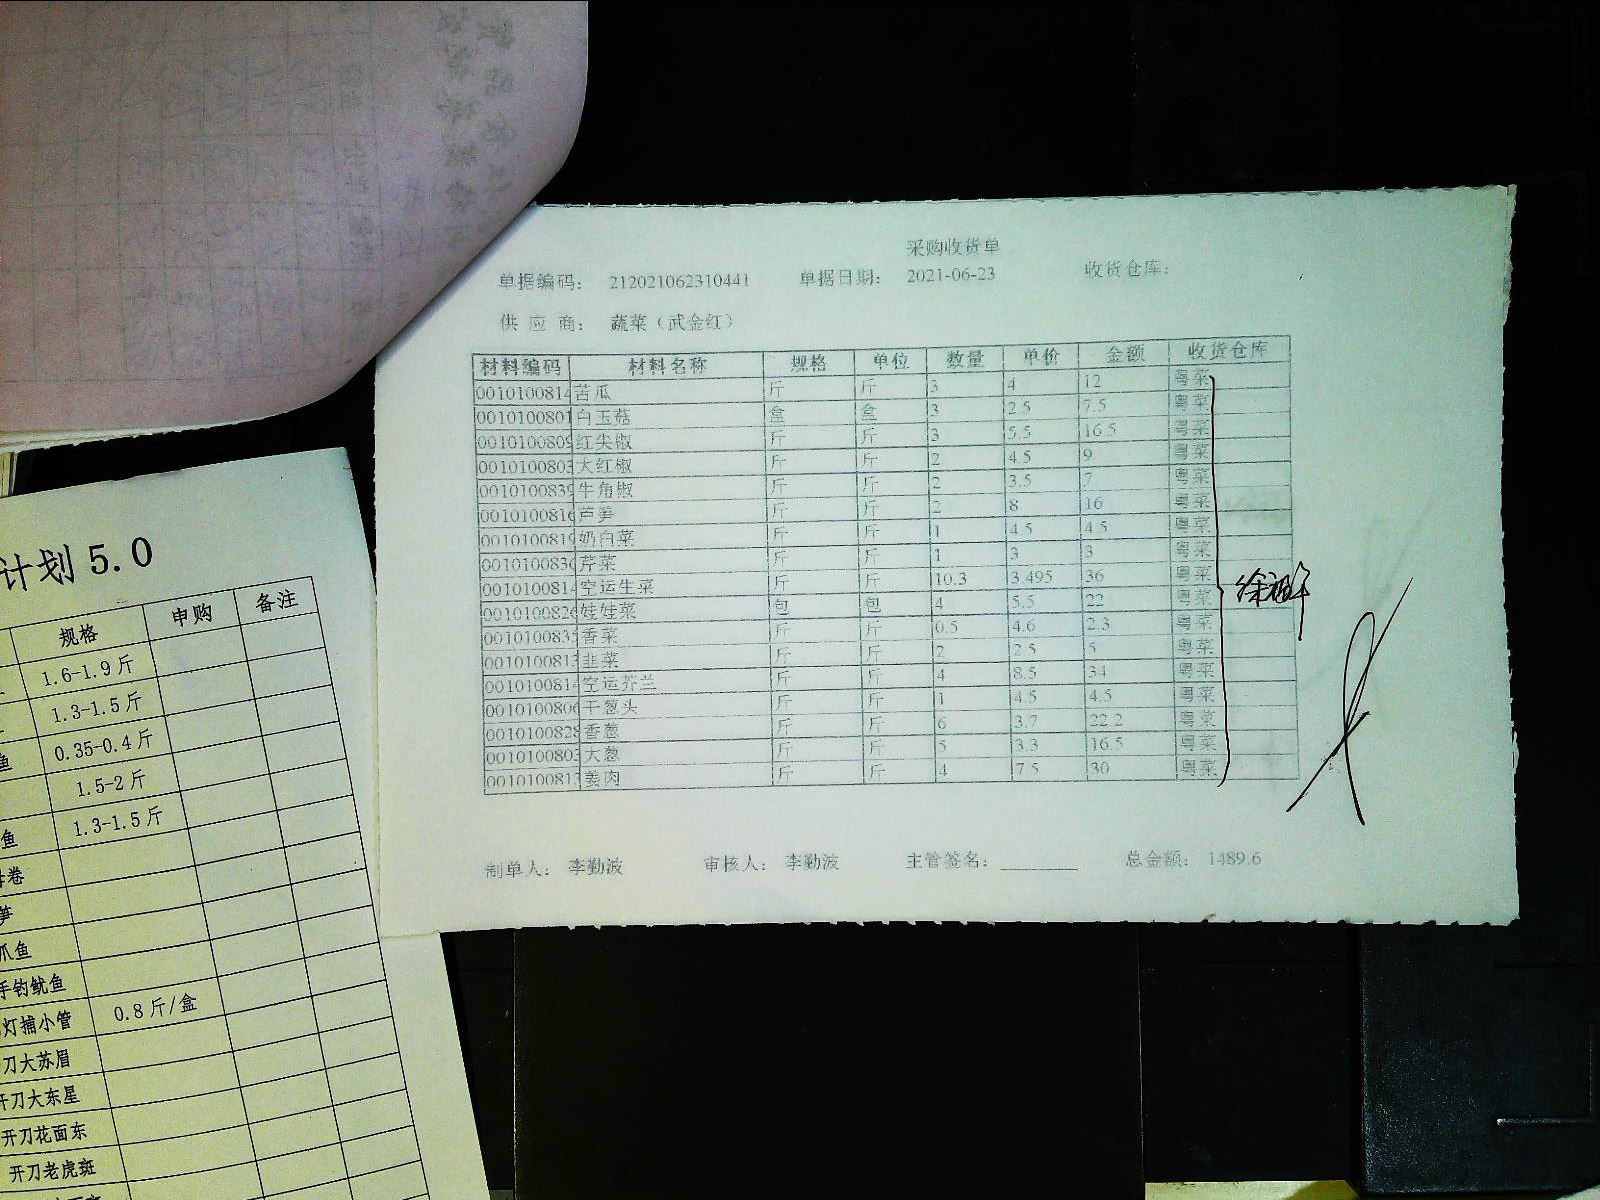 采购收货单
单据编码： 212021062310441 单据日期： 2021-06-23 收货仓库：
供 应 商： 蔬菜（武金红）
材料编码 材料名称 规格 单位 数量 单价 金额 收货仓库
0010100814 苦瓜 斤 斤 3 4 12 粤菜
0010100801 白玉菇 盒 盒 3 2.5 7.5 粤菜
0010100809 红尖椒 斤 斤 3 5.5 16.5 粤菜
0010100803 大红椒 斤 斤 2 4.5 9 粤菜
0010100839 牛角椒 斤 斤 2 3.5 7 粤菜
0010100816 芦笋 斤 斤 2 8 16 粤菜
0010100819 奶白菜 斤 斤 1 4.5 4.5 粤菜
0010100836 芹菜 斤 斤 1 3 3 粤菜
0010100814 空运生菜 斤 斤 10.3 3.495 36 粤菜
0010100826 娃娃菜 包 包 4 5.5 22 粤菜
0010100835 香菜 斤 斤 0.5 4.6 2.3 粤菜
0010100813 韭菜 斤 斤 2 2.5 5 粤菜
0010100814 空运芥兰 斤 斤 4 8.5 34 粤菜
0010100806 干葱头 斤 斤 1 4.5 4.5 粤菜
0010100828 香葱 斤 斤 6 3.7 22.2 粤菜
0010100803 大葱 斤 斤 5 3.3 16.5 粤菜
0010100813 姜肉 斤 斤 4 7.5 30 粤菜
制单人： 李勤波 审核人： 李勤波 主管签名： 总金额： 1489.6
计划 5.0
规格 申购 备注
1.6-1.9 斤
1.3-1.5 斤
鱼 0.35-0.4 斤
1.5-2 斤
鱼 1.3-1.5 斤
卷
笋
爪鱼
手钓鱿鱼
灯捕小管 0.8 斤/盒
刀大苏眉
开刀大东星
开刀花面东
开刀老虎斑